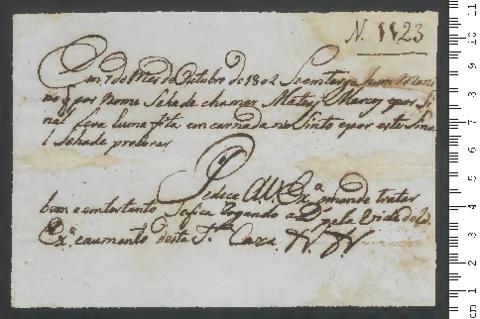 N. 1123
Em 7 do Mes de Outubro de 1802 Se emtarga hum Meni
no q por Nome Sehade chamar Mateus Marcos epor Si
nal Leva huma fita em carnada no Sinto epor este Sina
l Sehade procurar
Pedece AV. Exª. omande tratar
bem e emtertanto Sefica Rogando a D. pela Vida de V.
Exª. e aumento desta Stª. Caza.